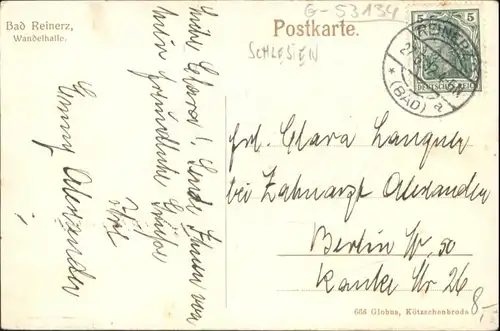 Bad Reinerz,
Wandelhalle.
G-53134
Postkarte.
SCHLESIEN
5 5
DEUTSCHES REICH
REINERZ
* (BAD) a
Liebe Clara! Sende Ihnen von
hier freundliche Grüße
Ihre
Emmy Alexander
Frl. Clara Langner
bei Zahnarzt Alexander
Berlin W. 50
Ranke Str 26
666 Globus, Kötzschenbroda
8,-